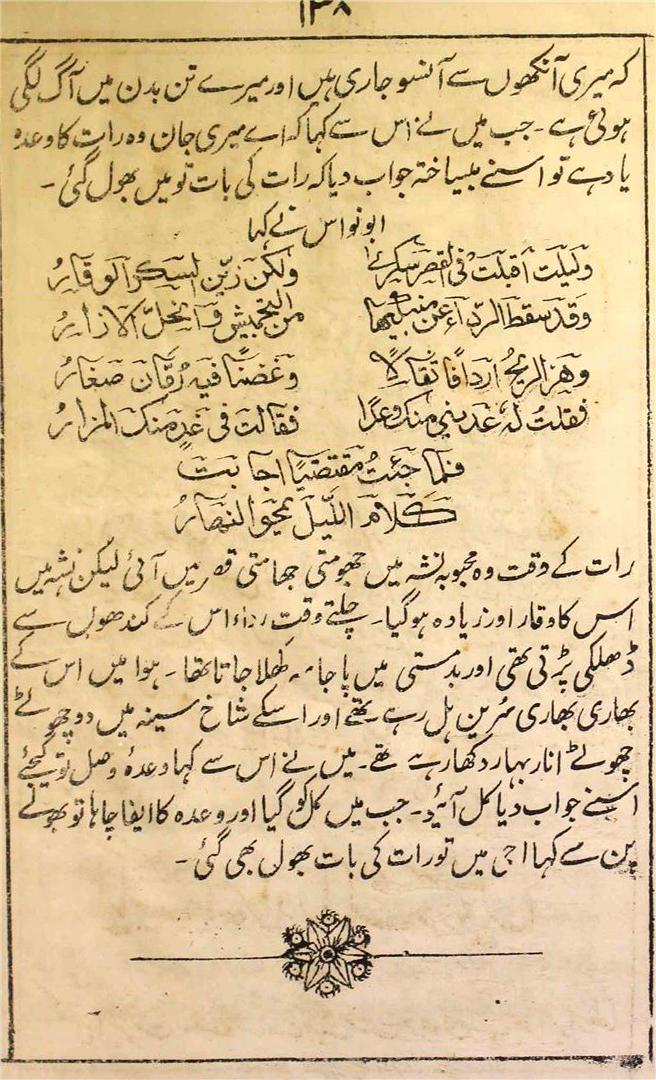 ۱۳۸
کہ میری آنکھوں سے آنسو جاری ہیں اور میرے تن بدن میں آگ لگی
ہوئی ہے۔ جب میں نے اس سے کہا کہ اے میری جان وہ رات کا وعدہ
یاد ہے تو اسنے بیساختہ جواب دیا کہ رات کی بات تو میں بھول گئی۔
ابو نواس نے کہا
ولیلت اقبلت فی القصر سکری ولکن زین السکر الوقار
وقد سقط الردآء عن منکبیها من التخمیش وانحل الازار
وهز الریح اردافا ثقالا وغصنا فیه رمان صغار
فقلت له عدینی منک وعدا فقالت فی غد منک المزار
فلما جئت مقتضیا اجابت
کلام اللیل یمحو النهار
رات کے وقت وہ محبوبہ نشہ میں جھومتی جھامتی قصر میں آئی لیکن نشہ میں
اس کا وقار اور زیادہ ہوگیا۔ چلتے وقت رداء اس کے کندھوں سے
ڈھلکی پڑتی تھی اور بدمستی میں پاجامہ کھلا جاتا تھا۔ ہوا میں اس کے
بھاری بھاری سرین ہل رہے تھے اور اسکے شاخ سینہ میں دو چھوٹے
چھوٹے انار بہار دکھا رہے تھے۔ میں نے اس سے کہا وعدۂ وصل تو کیجئے
اسنے جواب دیا کل آئیو۔ جب میں کل کو گیا اور وعدہ کا ایفا چاہا تو بھولے
پن سے کہا اجی میں تو رات کی بات بھول بھی گئی۔